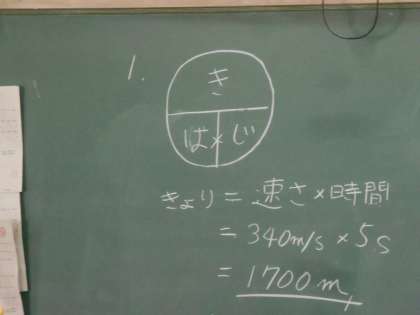 1.
き
は×じ
きょり = 速さ×時間
= 340m/s × 5s
= 1700m